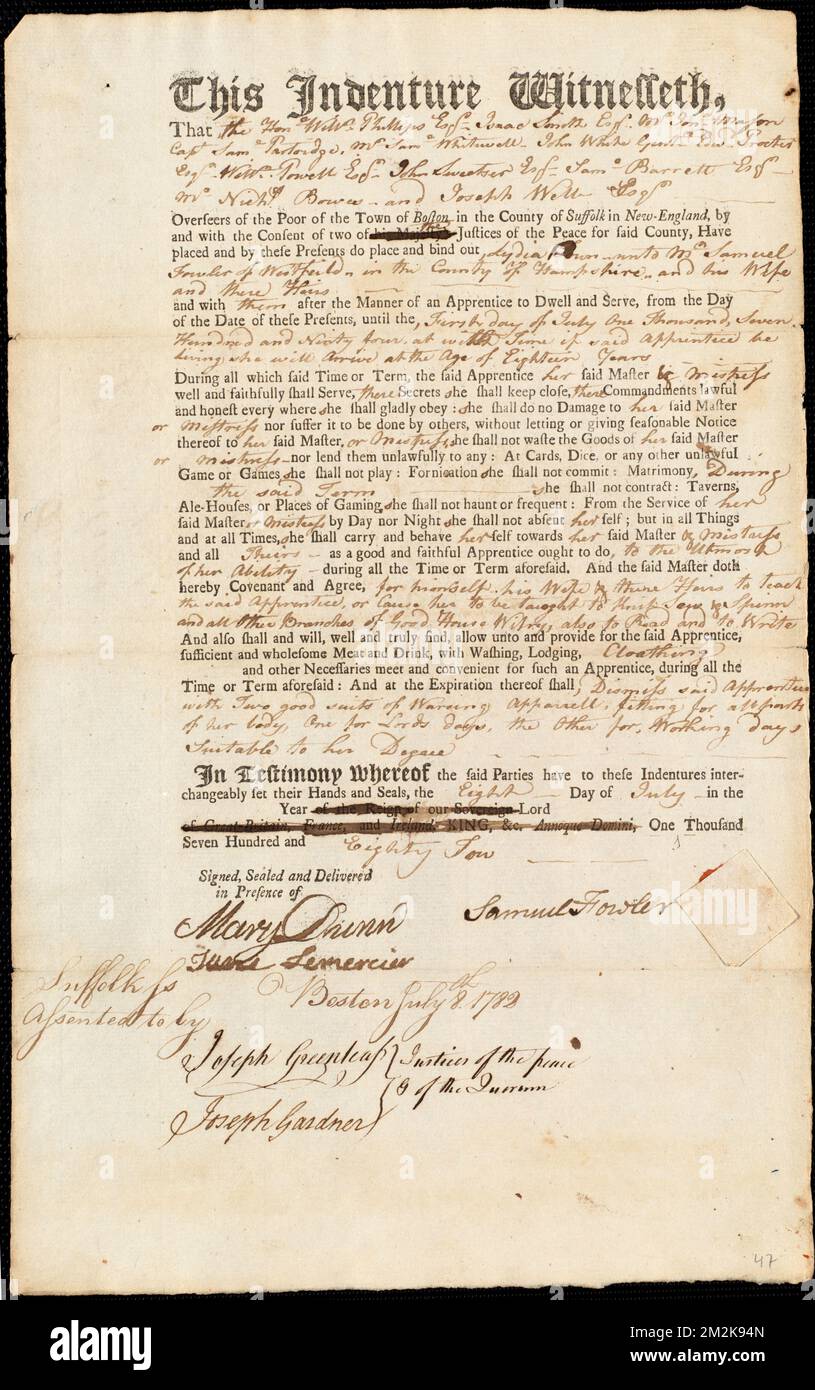 This Indenture Witnesseth,
That the Honᵉ Willᵐ Phillips Esqʳ Isaac Smith Esqʳ Mʳ Jonᵃ Mason
Capᵗ Samˡ Partridge, Mʳ Samˡ Whitwell John White Proctor
Esqʳ Willᵐ Powell Esqʳ John Sweetser Esqʳ Samˡ Barrett Esqʳ
Mʳ Nichˢ Bowes and Joseph Esqʳ
Overseers of the Poor of the Town of Boston in the County of Suffolk in New-England, by
and with the Consent of two of his Majesty's Justices of the Peace for said County, Have
placed and by these Presents do place and bind out Lydia unto Mʳ Samuel
Fowler of Westfeild in the County of Hampshire and his Wife
and there Heirs
and with them after the Manner of an Apprentice to Dwell and Serve, from the Day
of the Date of these Presents, until the, First day of July One Thousand Seven
Hundred and Ninty four at wᶜʰ Time if said Apprentice be
living she will Arrive at the Age of Eighteen Years
During all which said Time or Term, the said Apprentice her said Master & Mistress
well and faithfully shall Serve, there Secrets she shall keep close, there Commandments lawful
and honest every where she shall gladly obey : she shall do no Damage to her said Master
or Mistress nor suffer it to be done by others, without letting or giving seasonable Notice
thereof to her said Master, or Mistress, she shall not waste the Goods of her said Master
or Mistress nor lend them unlawfully to any : At Cards, Dice, or any other unlawful
Game or Games she shall not play : Fornication she shall not commit : Matrimony, During
the said Term she shall not contract : Taverns,
Ale-Houses, or Places of Gaming she shall not haunt or frequent : From the Service of her
said Master or Mistress by Day nor Night she shall not absent her self ; but in all Things
and at all Times, she shall carry and behave her self towards her said Master & Mistress
and all Theirs as a good and faithful Apprentice ought to do, to the Utmost
of her Ability during all the Time or Term aforesaid. And the said Master doth
hereby Covenant and Agree, for himself his Wife & there Heirs to teach
the said Apprentice, or Cause her to be taught to Knitt Sow & Spinn
and all other Branches of Good House Wifry also to Read and to Write
And also shall and will, well and truly find, allow unto and provide for the said Apprentice,
sufficient and wholesome Meat and Drink, with Washing, Lodging, Cloathing
and other Necessaries meet and convenient for such an Apprentice, during all the
Time or Term aforesaid : And at the Expiration thereof shall, Dismiss said Apprentice
with Two good suits of Waring Apparrell, fitting for all parts
of her body, One for Lords days, the Other for, Working days
Suitable to her Degree
In Testimony Whereof the said Parties have to these Indentures inter-
changeably set their Hands and Seals, the Eight Day of July in the
Year of the Reign of our Sovereign Lord
of Great-Britain, France, and Ireland, KING, &c. Annoque Domini, One Thousand
Seven Hundred and Eighty Tow
Signed, Sealed and Delivered
in Presence of
Mary Dunn
Samuel Fowler
Lemercier
Suffolk ss
Boston July 8ᵗʰ 1782
Assented to by
Joseph Greenleaf
Justices of the peace
& of the Quorum
Joseph Gardner
47
alamy
alamy
Image ID: 2M2K94N
www.alamy.com